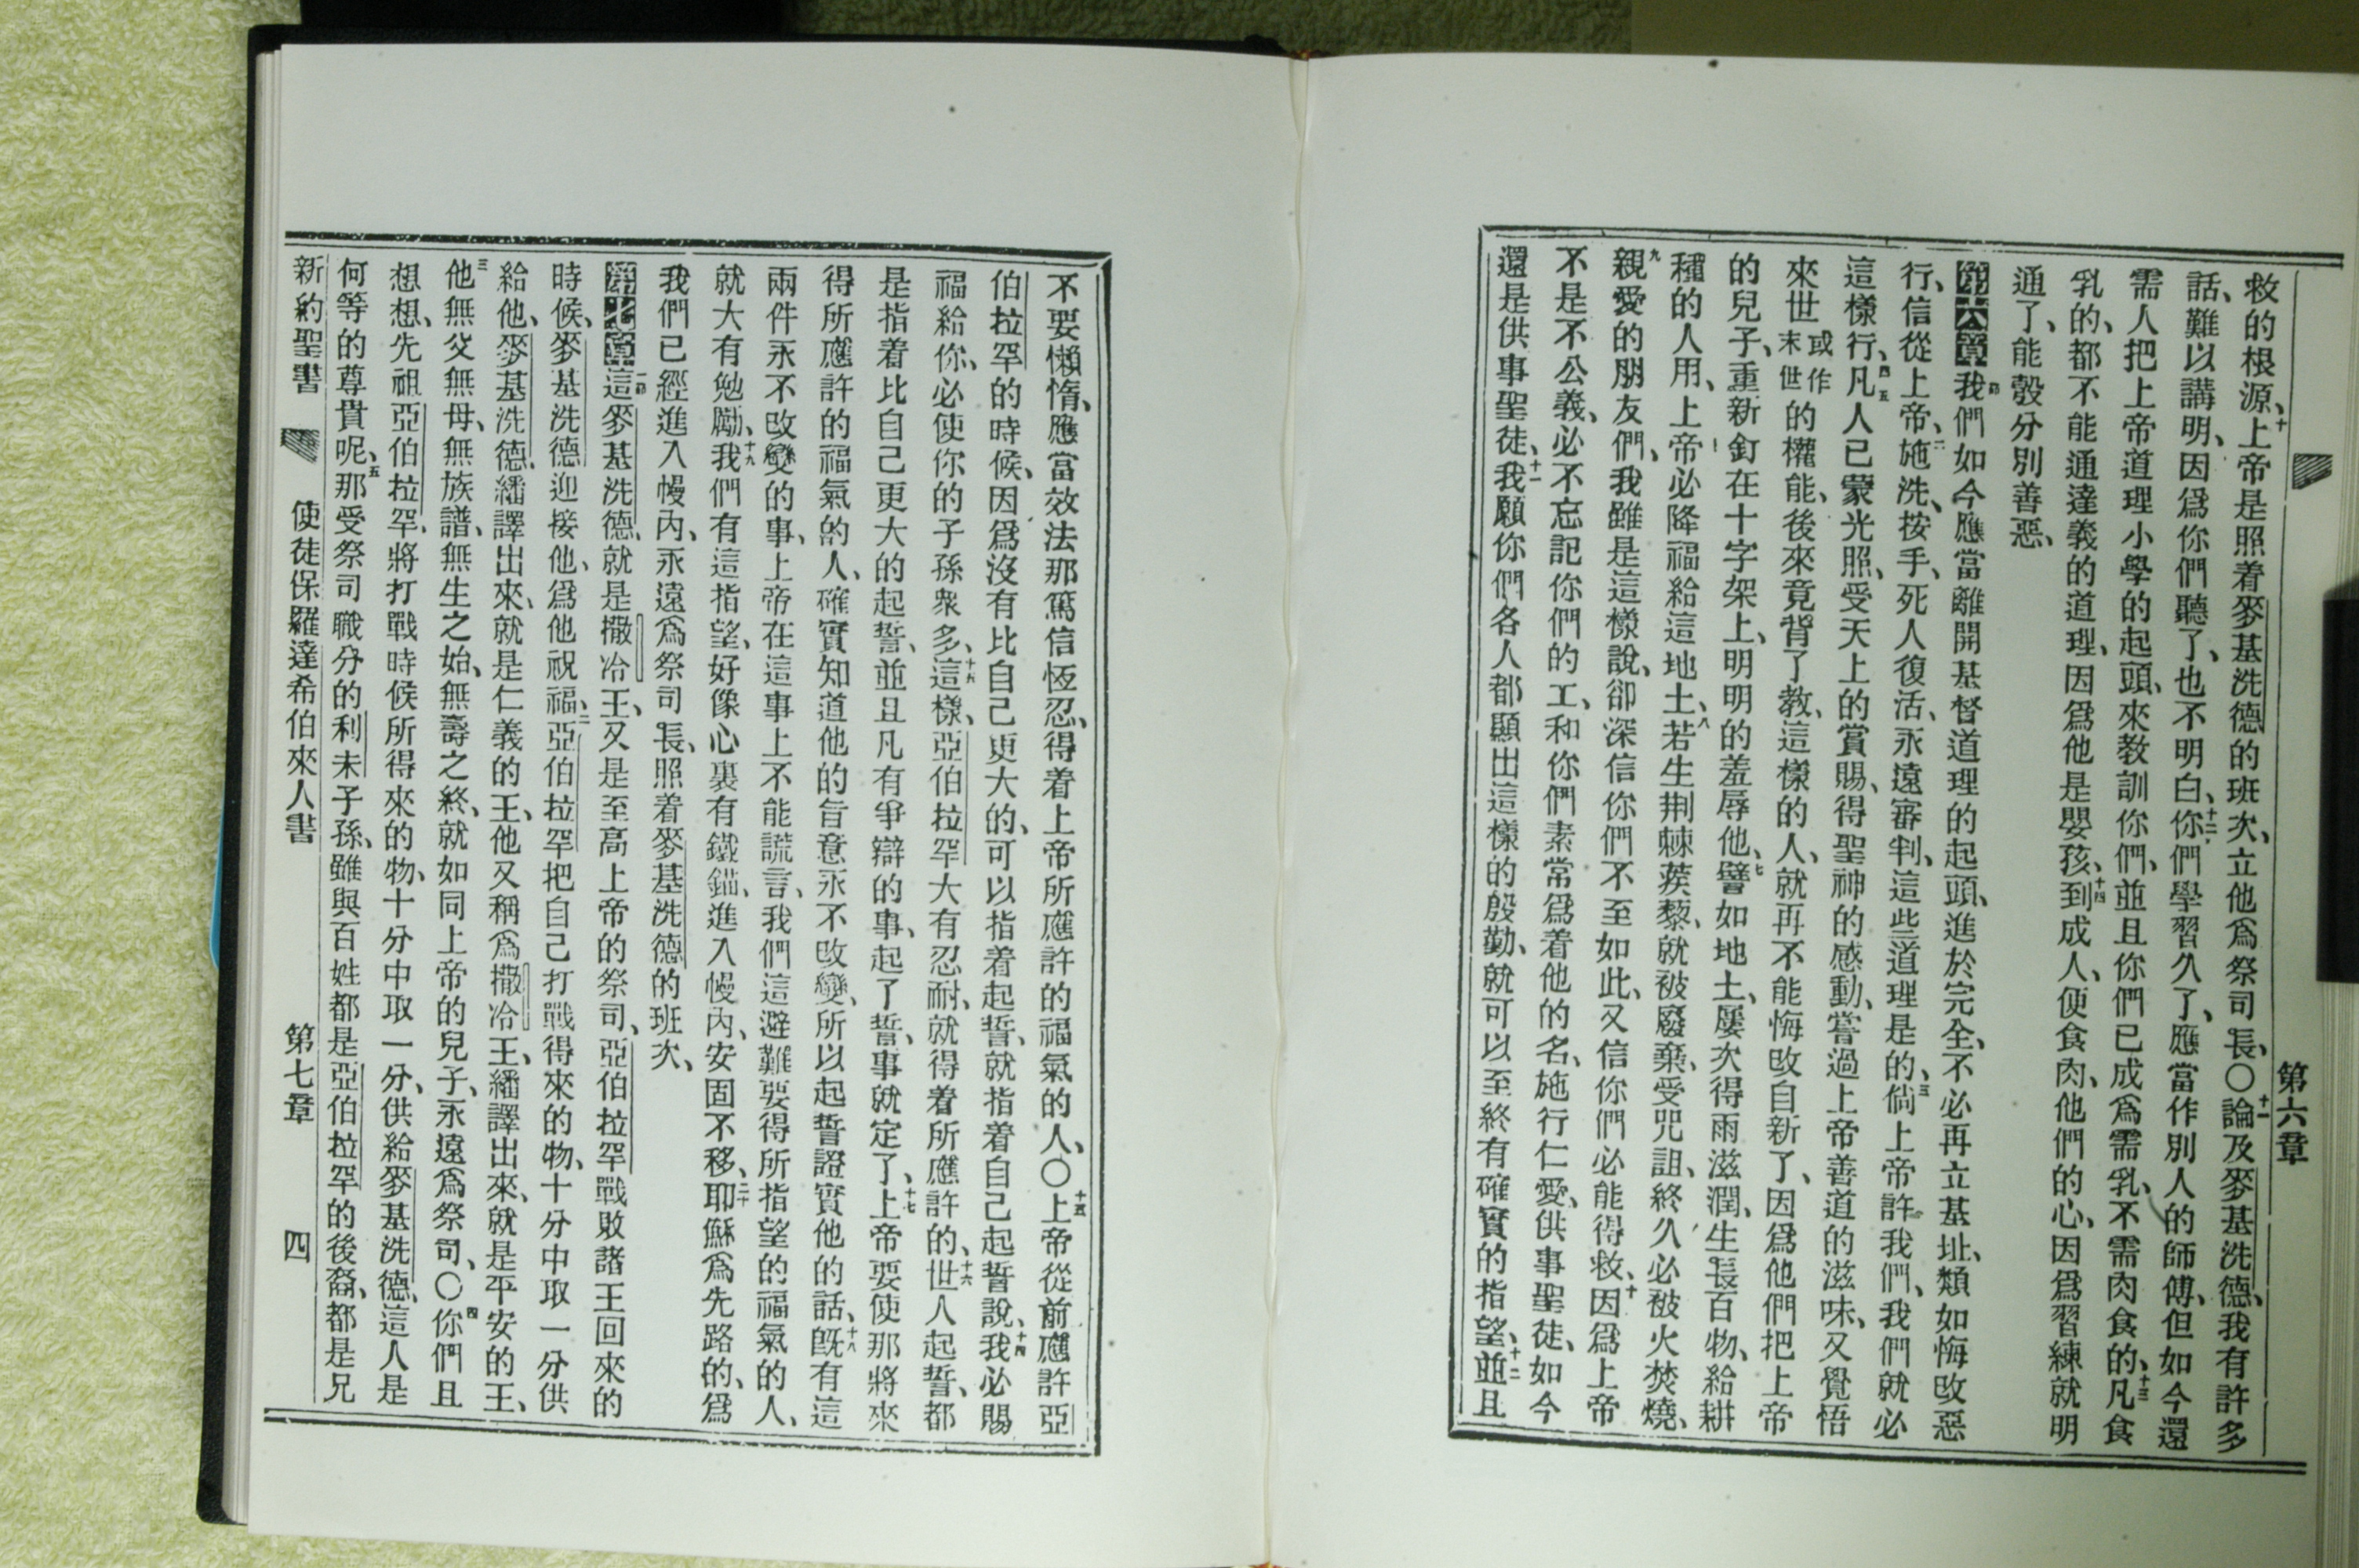 第六章
救的根源、十上帝是照着麥基洗德的班次、立他爲祭司長、〇十一論及麥基洗德、我有許多
話、難以講明、因爲你們聽了、也不明白、十二你們學習久了、應當作別人的師傅、但如今還
需人把上帝道理小學的起頭、來教訓你們、並且你們已成爲需乳、不需肉食的、十三凡食
乳的、都不能通達義的道理、因爲他是嬰孩、十四到成人、便食肉、他們的心、因爲習練就明
通了、能彀分別善惡、
第六章一節我們如今應當離開基督道理的起頭、進於完全、不必再立基址、類如悔改惡
行、信從上帝、二施洗、按手、死人復活、永遠審判、這些道理是的、三倘上帝許我們、我們就必
這樣行、四五凡人已蒙光照、受天上的賞賜、得聖神的感動、嘗過上帝善道的滋味、又覺悟
來世或作末世的權能、後來竟背了教、這樣的人、就再不能悔改自新了、因爲他們把上帝
的兒子、重新釘在十字架上、明明的羞辱他、七譬如地土、屢次得雨滋潤、生長百物、給耕
種的人用、上帝必降福給這地土、八若生荆棘蒺藜、就被廢棄、受咒詛、終久必被火焚燒、
九親愛的朋友們、我雖是這樣說、卻深信你們不至如此、又信你們必能得救、十因爲上帝
不是不公義、必不忘記你們的工、和你們素常爲着他的名、施行仁愛、供事聖徒、如今
還是供事聖徒、十一我願你們各人都顯出這樣的殷勤、就可以至終有確實的指望、十二並且
不要懶惰、應當效法那篤信恆忍、得着上帝所應許的福氣的人、〇十三上帝從前應許亞
伯拉罕的時候、因爲沒有比自己更大的、可以指着起誓、就指着自己起誓說、十四我必賜
福給你、必使你的子孫衆多、十五這樣、亞伯拉罕大有忍耐、就得着所應許的、十六世人起誓、都
是指着比自己更大的起誓、並且凡有爭辯的事、起了誓、事就定了、十七上帝要使那將來
得所應許的福氣的人、確實知道他的旨意永不改變、所以起誓證實他的話、十八旣有這
兩件永不改變的事、上帝在這事上不能謊言、我們這避難要得所指望的福氣的人、
就大有勉勵、十九我們有這指望、好像心裏有鐵錨、進入幔內、安固不移、二十耶穌爲先路的、爲
我們已經進入幔內、永遠爲祭司長、照着麥基洗德的班次、
第七章一節這麥基洗德、就是撒冷王、又是至高上帝的祭司、亞伯拉罕戰敗諸王回來的
時候、麥基洗德迎接他、爲他祝福、二亞伯拉罕把自己打戰得來的物、十分中取一分供
給他、麥基洗德、繙譯出來、就是仁義的王、他又稱爲撒冷王、繙譯出來、就是平安的王、
三他無父無母、無族譜、無生之始、無壽之終、就如同上帝的兒子、永遠爲祭司、〇四你們且
想想、先祖亞伯拉罕、將打戰時候所得來的物、十分中取一分、供給麥基洗德、這人是
何等的尊貴呢、五那受祭司職分的利未子孫、雖與百姓都是亞伯拉罕的後裔、都是兄
新約聖書 使徒保羅達希伯來人書 第七章 四